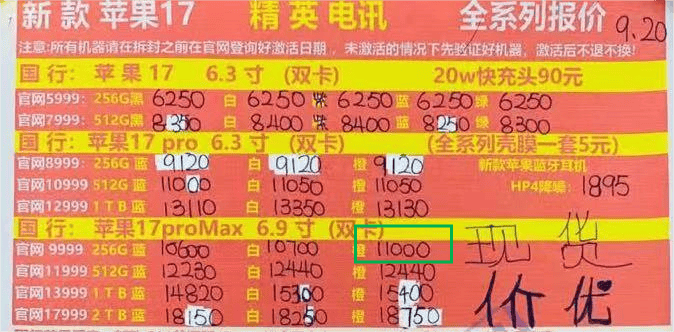 新款苹果17 精英电讯 全系列报价 9.20
注意:所有机器请在拆封之前在官网登询好激活日期，未激活的情况下先验证好机器，激活后不退不换!
国行：苹果17 6.3寸 (双卡) 20w快充头90元
官网5999：256G黑 6250 白 6250 紫 6250 蓝 6250 绿 6250
官网7999：512G黑 8350 白 8400 紫 8400 蓝 8250 绿 8300
国行：苹果17 pro 6.3寸 (双卡) (全系列壳膜一套5元)
官网8999：256G 蓝 9120 白 9120 橙 9120 新款苹果蓝牙耳机
官网10999 512G 蓝 11000 白 11050 橙 11050 HP4降噪：1895
官网12999 1TB 蓝 13110 白 13350 橙 13130
国行：苹果17proMax 6.9寸 (双卡)
官网 9999 256G 蓝 10600 白 10700 橙 11000 现货
官网11999 512G 蓝 12230 白 12440 橙 12440
官网13999 1TB 蓝 14820 白 15300 橙 15400 价优
官网17999 2TB 蓝 18150 白 18250 橙 18750